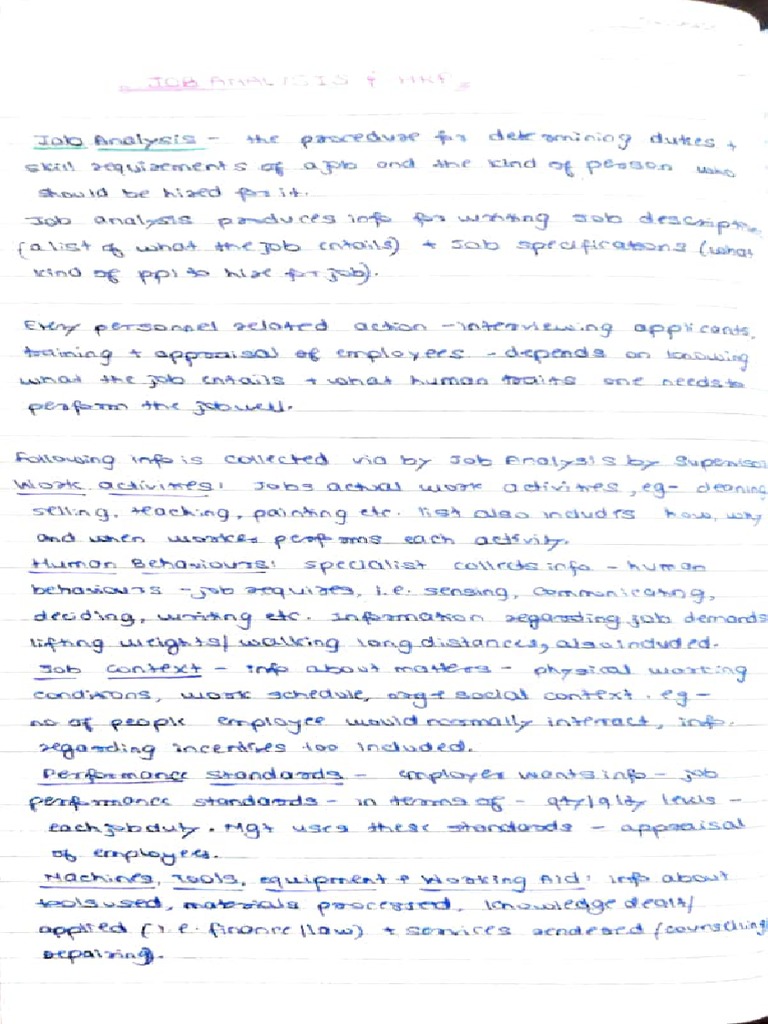 JOB ANALYSIS & HRP
Job Analysis - the procedure for determining duties +
skill requirements of a job and the kind of person who
should be hired for it.
Job analysis produces info for writing Job descriptio
(a list of what the job entails) + Job specifications (what
kind of ppl to hire for job).
Every personnel related action - interviewing applicants,
training + appraisal of employees - depends on knowing
what the job entails + what human traits one needs to
perform the job well.
Following info is collected via by Job Analysis by Supervisor
Work activities: Jobs actual work activities, eg- cleaning
selling, teaching, painting etc. list also includes how, why
and when worker performs each activity.
Human Behaviours: specialist collects info - human
behaviours - job requires, i.e. sensing, communicating,
deciding, writing etc. Information regarding job demands
lifting weights/walking long distances, also included.
Job context - info about matters - physical working
conditions, work schedule, org + social context. eg-
no of people employee would normally interract, info.
regarding incentives too included.
Performance standards - employer wants info - job
performance standards - in terms of - qty/qlty levels -
each job duty. Mgt uses these standards - appraisal
of employees.
Machines, Tools, equipment + Working Aid: info about
tools used, materials processed, knowledge dealt/
applied (i.e. finance/law) + services rendered (counselling
repairing).